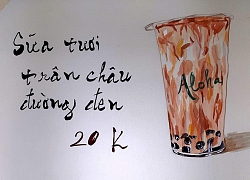 Sữa tươi
trân châu
đường đen
20 K
Aloha